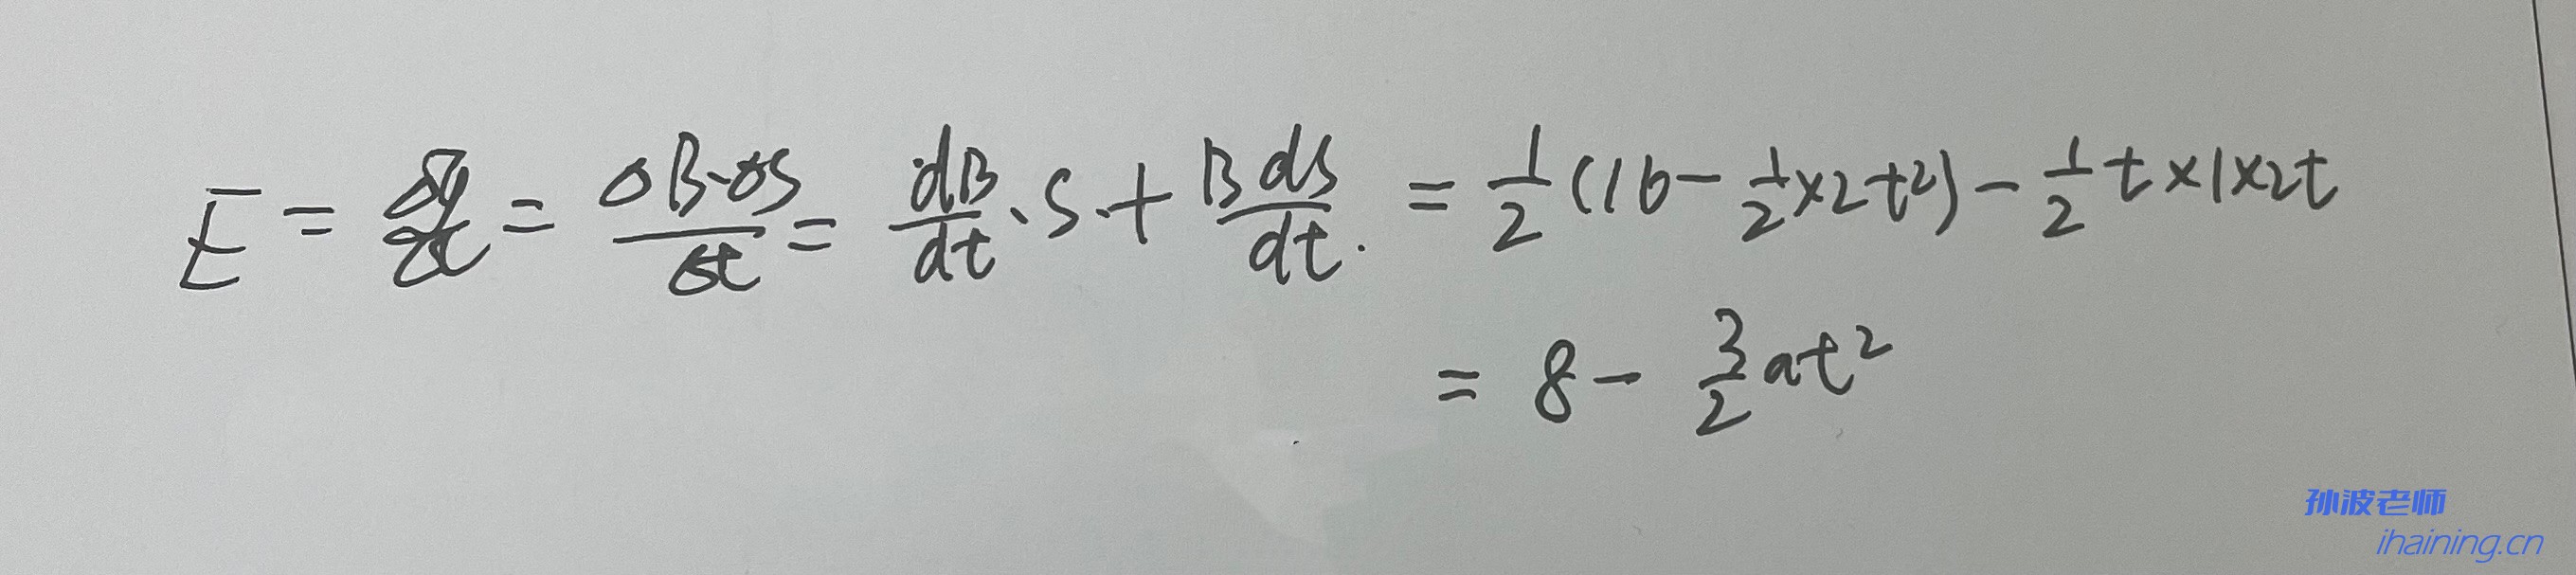 E = Δφ/Δt = ΔB·ΔS/Δt = dB/dt · S + B dS/dt. = 1/2 (16 - 1/2 × 2t²) - 1/2 t × 1 × 2t
= 8 - 3/2 at²
孙波老师
ihaining.cn